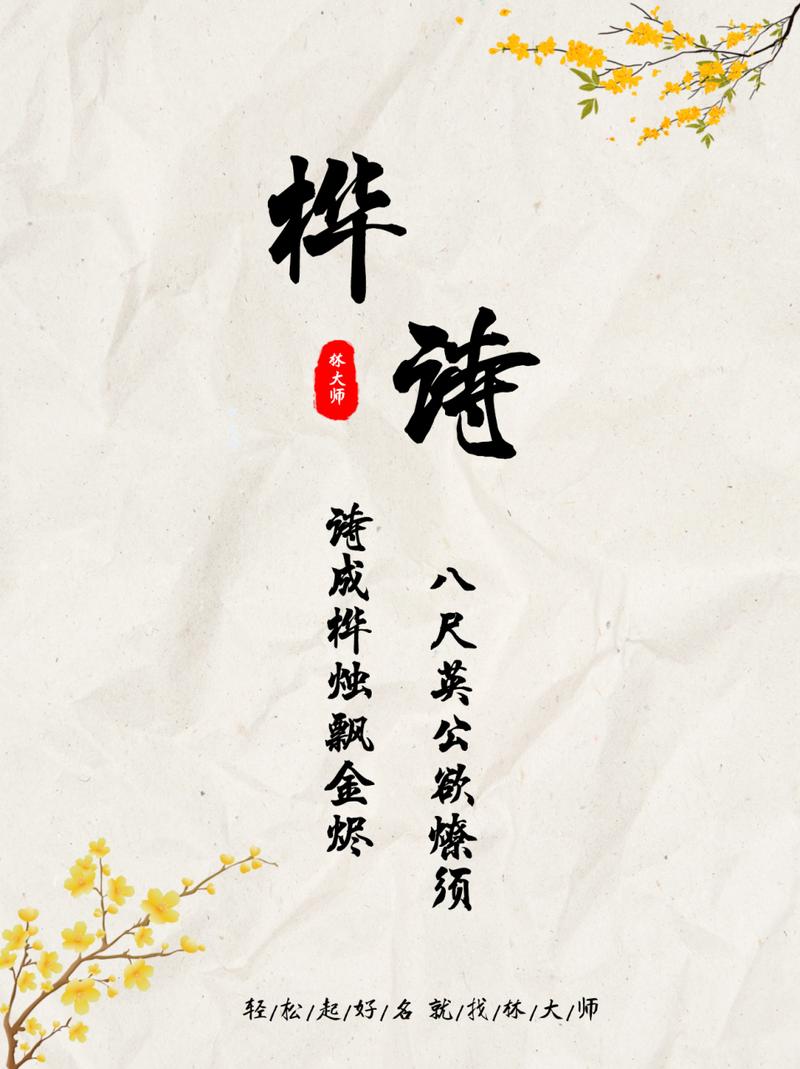 桦
诗
林大师
诗成桦烛飘金烬
八尺英公欲燎须
轻/松/起/好/名 就/找/林/大/师